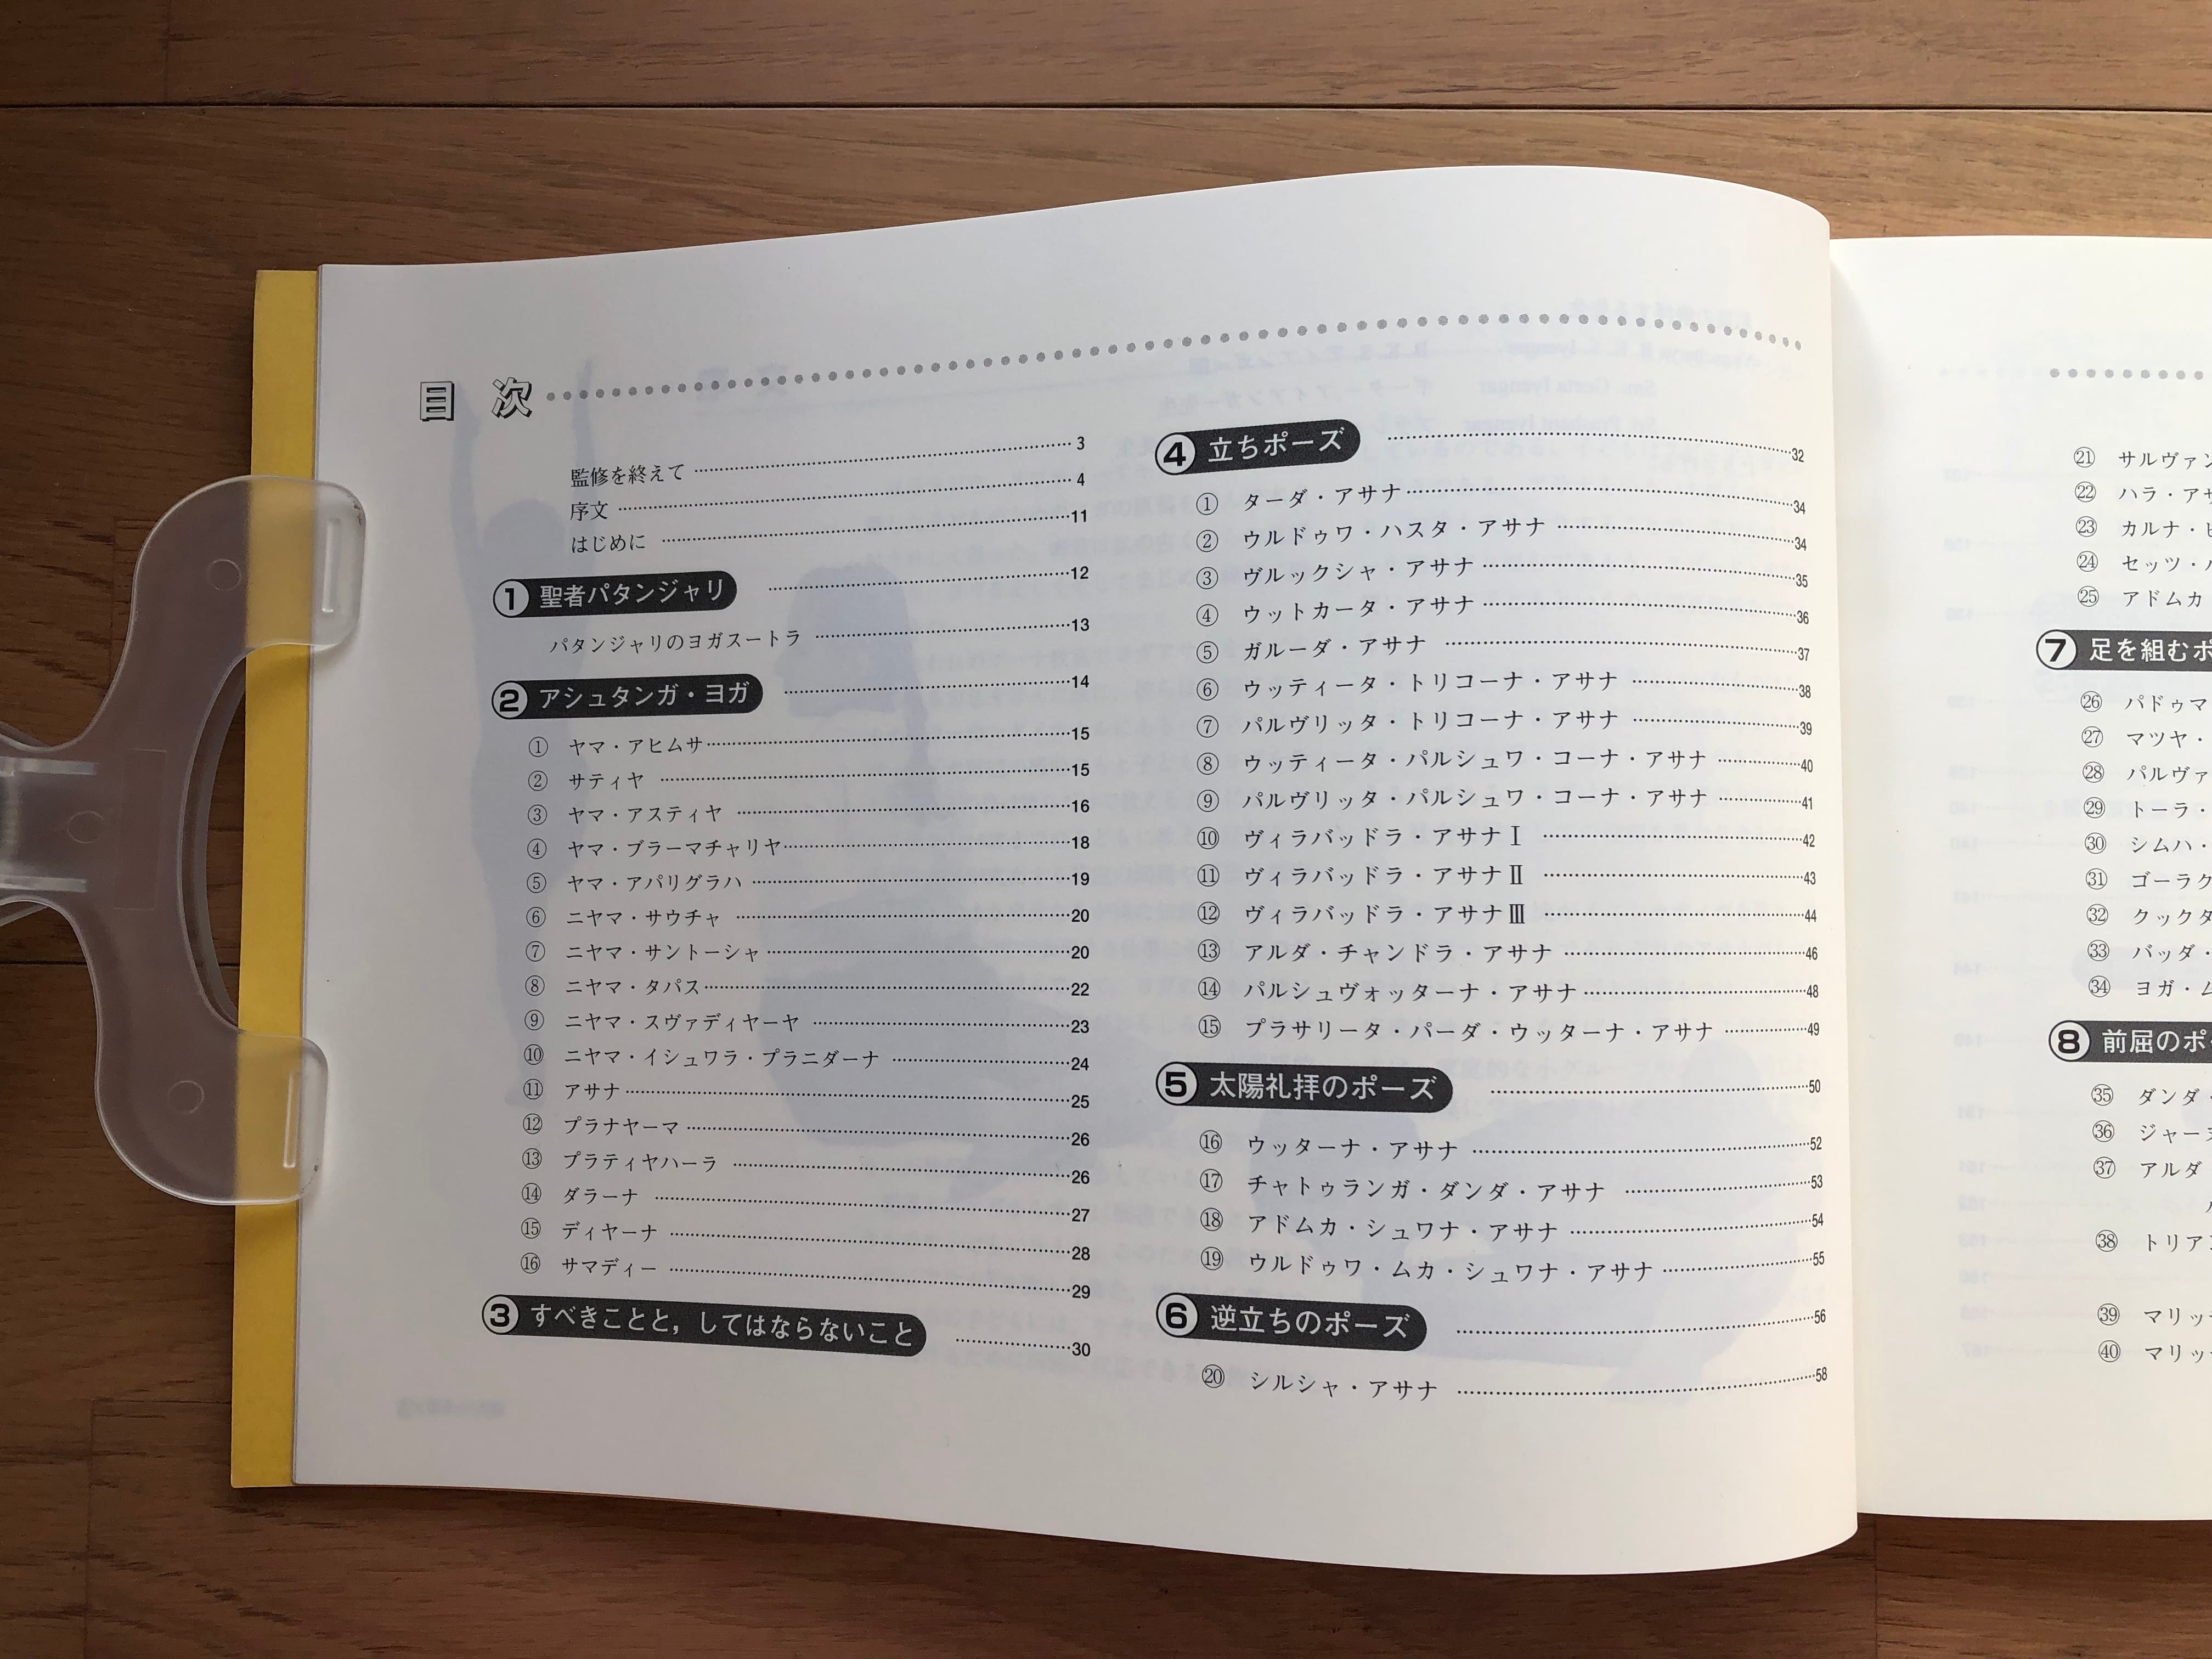 目 次
監修を終えて 3
序文 4
はじめに 11
1 聖者パタンジャリ 12
パタンジャリのヨガスートラ 13
2 アシュタンガ・ヨガ 14
① ヤマ・アヒムサ 15
② サティヤ 15
③ ヤマ・アスティヤ 16
④ ヤマ・ブラーマチャリヤ 18
⑤ ヤマ・アパリグラハ 19
⑥ ニヤマ・サウチャ 20
⑦ ニヤマ・サントーシャ 20
⑧ ニヤマ・タパス 22
⑨ ニヤマ・スヴァディヤーヤ 23
⑩ ニヤマ・イシュワラ・プラニダーナ 24
⑪ アサナ 25
⑫ プラナヤーマ 26
⑬ プラティヤハーラ 26
⑭ ダラーナ 27
⑮ ディヤーナ 28
⑯ サマディー 29
3 すべきことと，してはならないこと 30
4 立ちポーズ 32
① ターダ・アサナ 34
② ウルドゥワ・ハスタ・アサナ 34
③ ヴルックシャ・アサナ 35
④ ウットカータ・アサナ 36
⑤ ガルーダ・アサナ 37
⑥ ウッティータ・トリコーナ・アサナ 38
⑦ パルヴリッタ・トリコーナ・アサナ 39
⑧ ウッティータ・パルシュワ・コーナ・アサナ 40
⑨ パルヴリッタ・パルシュワ・コーナ・アサナ 41
⑩ ヴィラバッドラ・アサナⅠ 42
⑪ ヴィラバッドラ・アサナⅡ 43
⑫ ヴィラバッドラ・アサナⅢ 44
⑬ アルダ・チャンドラ・アサナ 46
⑭ パルシュヴォッターナ・アサナ 48
⑮ プラサリータ・パーダ・ウッターナ・アサナ 49
5 太陽礼拝のポーズ 50
⑯ ウッターナ・アサナ 52
⑰ チャトゥランガ・ダンダ・アサナ 53
⑱ アドムカ・シュワナ・アサナ 54
⑲ ウルドゥワ・ムカ・シュワナ・アサナ 55
6 逆立ちのポーズ 56
⑳ シルシャ・アサナ 58
㉑ サルヴァン
㉒ ハラ・ア
㉓ カルナ・
㉔ セッツ・
㉕ アドムカ
7 足を組むポ
㉖ パドゥマ
㉗ マツヤ・
㉘ パルヴァ
㉙ トーラ・
㉚ シムハ・
㉛ ゴーラク
㉜ クックタ
㉝ バッダ・
㉞ ヨガ・ム
8 前屈のポ
㉟ ダンダ・
㊱ ジャー
㊲ アルダ
㊳ トリア
㊴ マリッ
㊵ マリッ